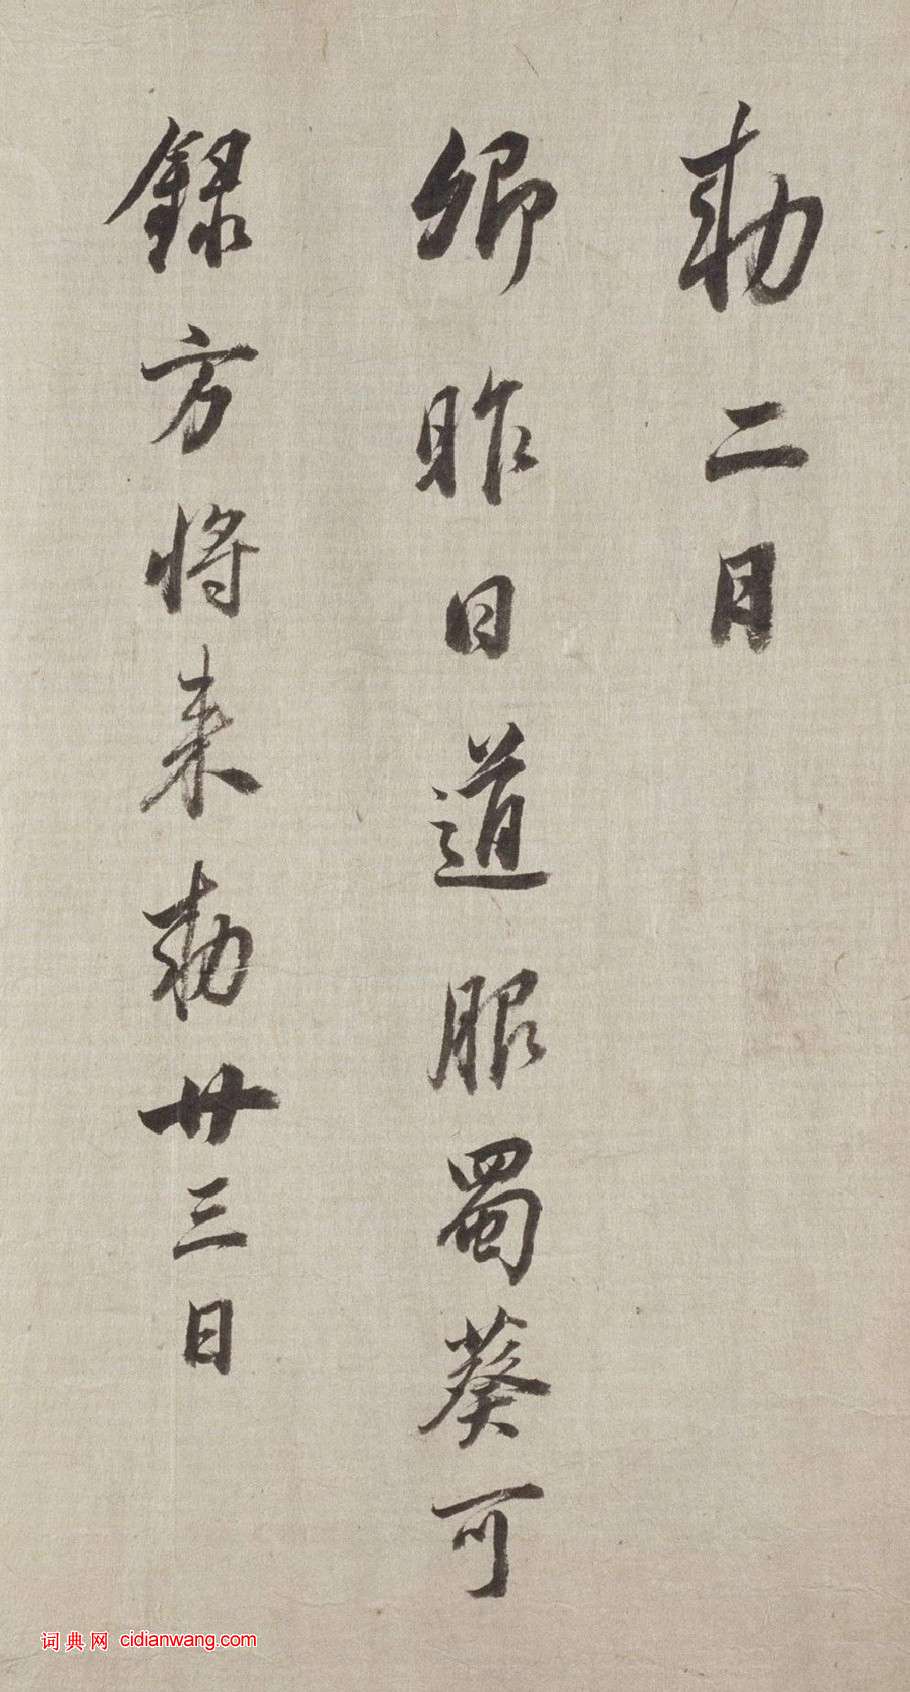 勅二月
卿昨日道服蜀葵可
録方将来勅廿三日
词典网 cidianwang.com